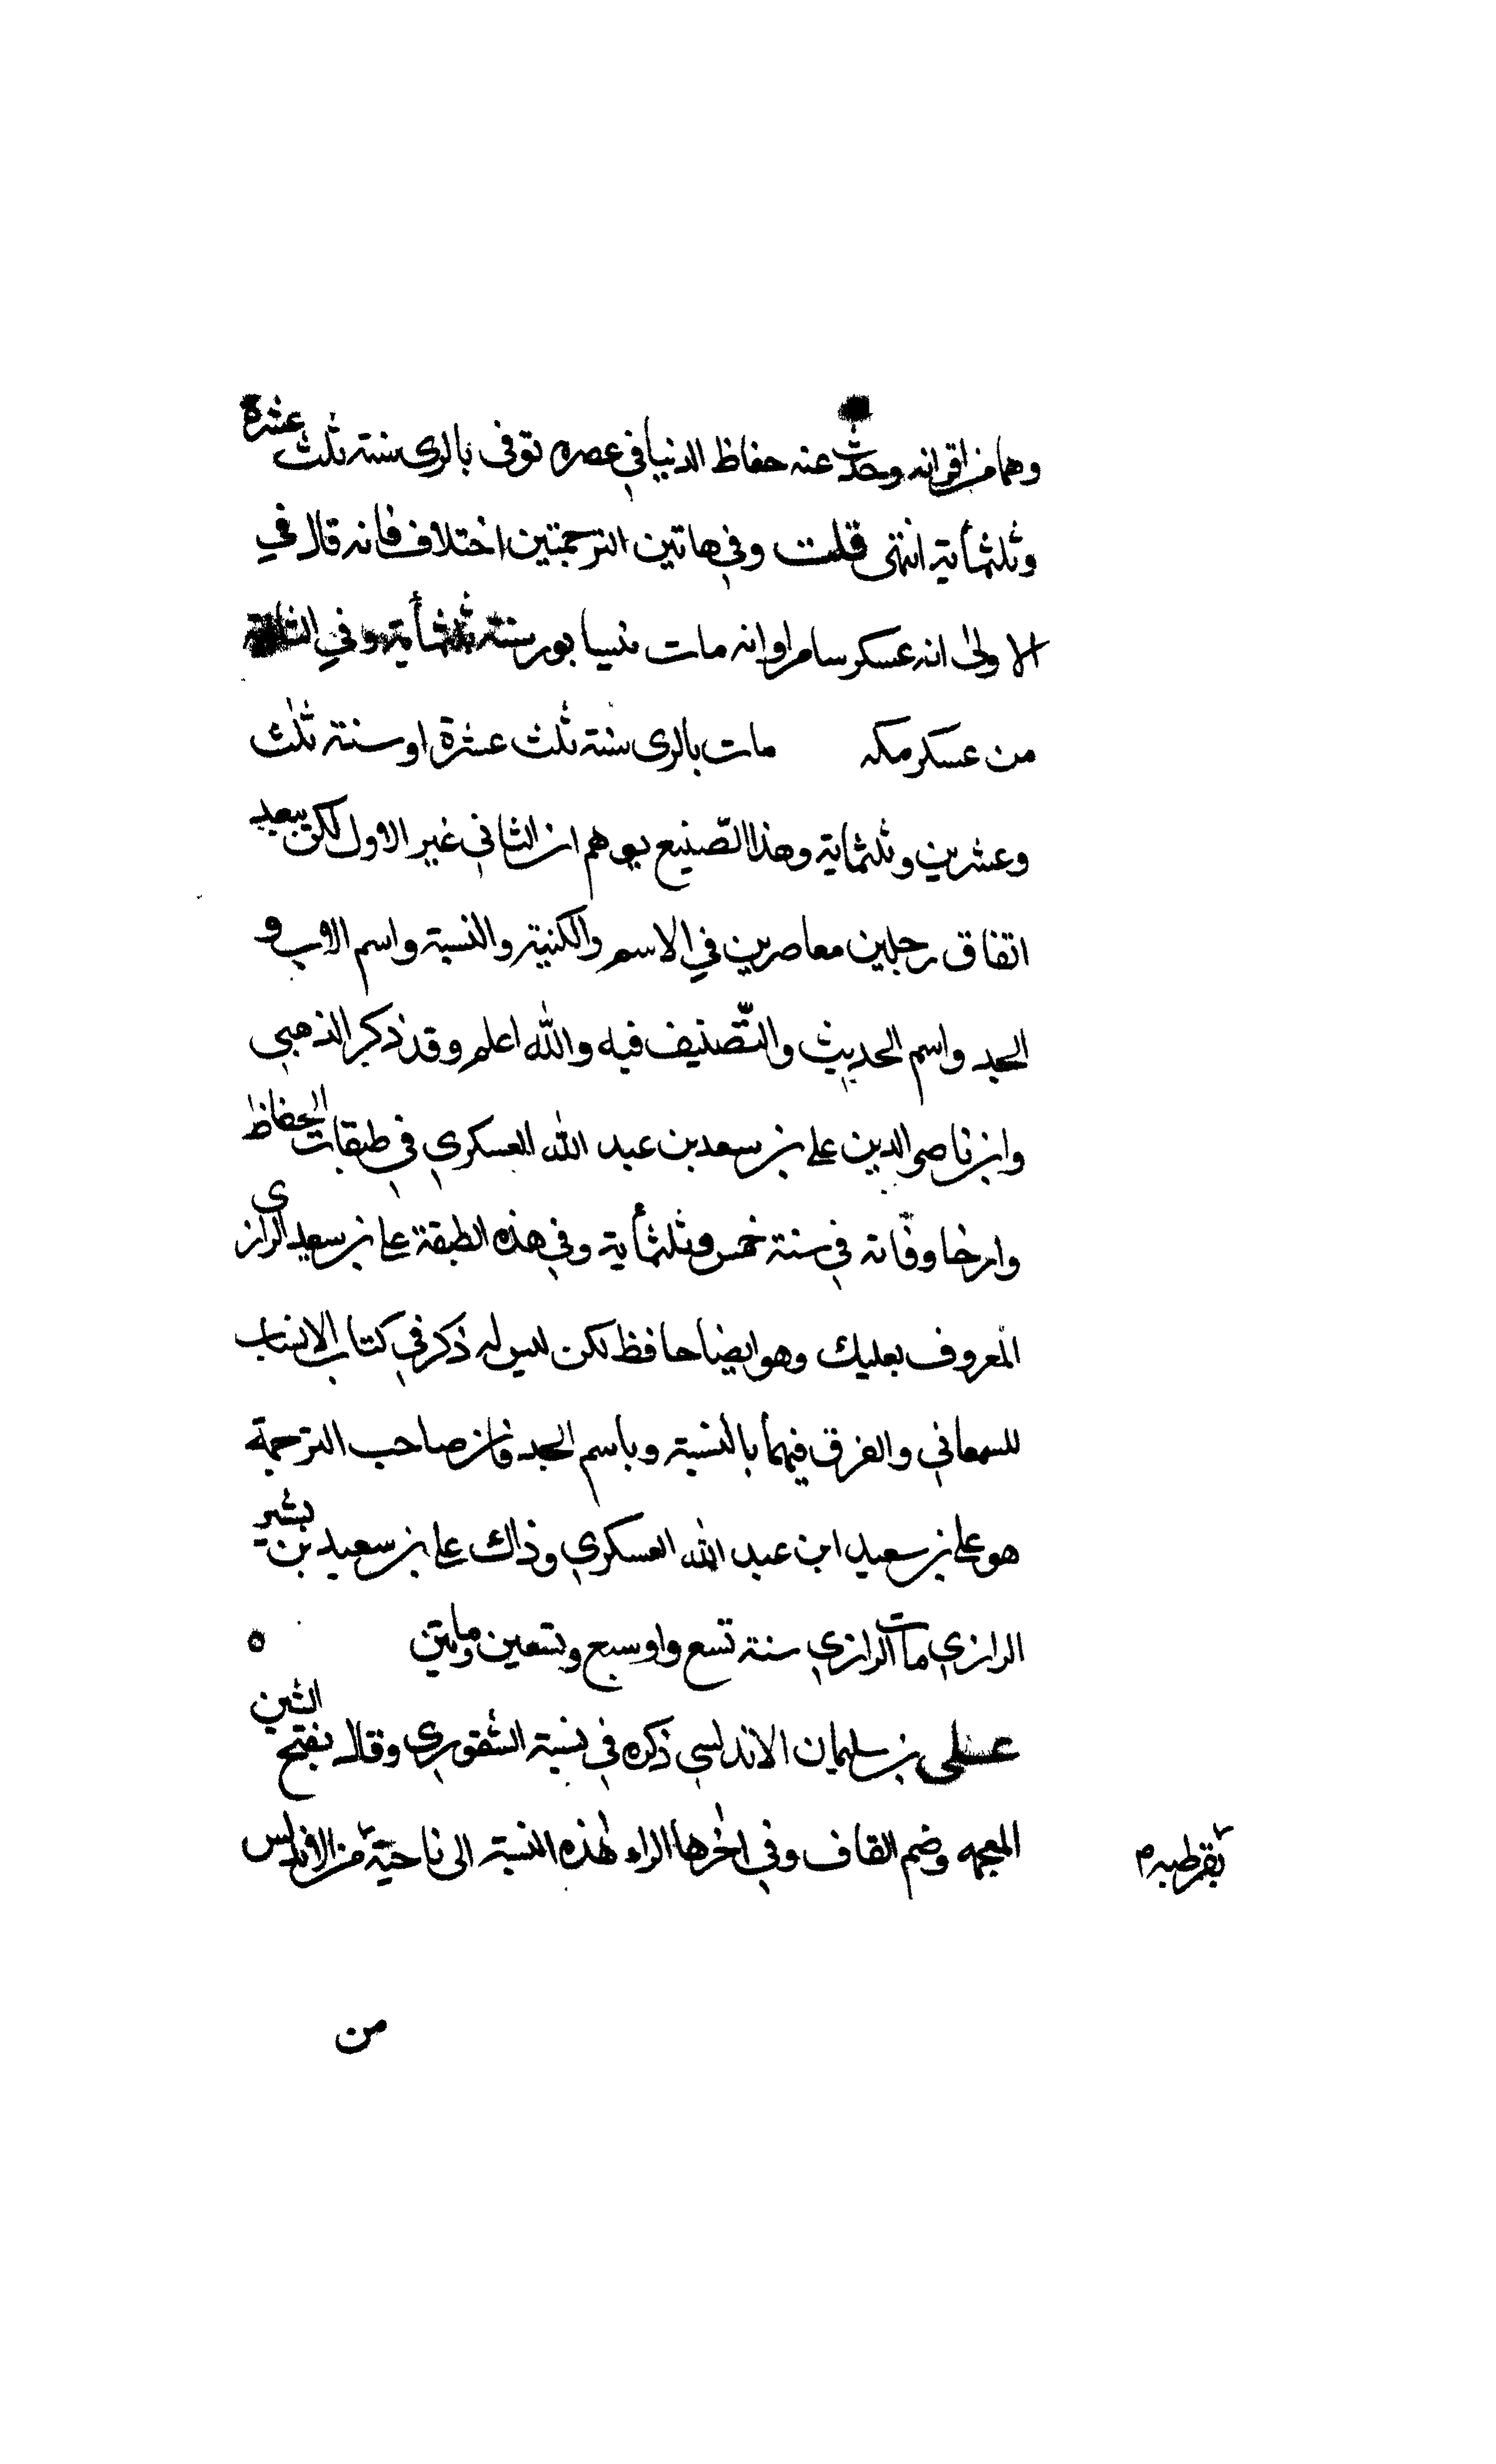 وهما من اقرانه وحدث عنه حفاظ الدنيا في عصره توفى بالرى سنة ثلث عشرة
وثلثمأية انتهى قلت وفي هاتين الترجمتين اختلاف فانه قال في
الاولى انه عسكر سامرا وانه مات بنيسابور سنة ثلثمأية وفي الثانية
من عسكر مكه مات بالرى سنة ثلث عشرة او سنة ثلث
وعشرين وثلثماية وهذا الصّنيع يوهم ان الثاني غير الاول لكن يبعد
اتفاق رجلين معاصرين في الاسم والكنية والنسبة واسم الاب و
الجد واسم الحديث والتّصنيف فيه والله اعلم وقد ذكر الذهبي
وابن ناصر الدين على بن سعد بن عبد الله العسكري في طبقات الحفاظ
وارخا وفاته في سنة خمس وثلثمأية وفي هذه الطبقة على بن سعيد الرازى
المعروف بعليك وهو ايضا حافظ لكن ليس له ذكر في كتاب الانساب
للسمعاني والفرق فيهما بالنسبة وباسم الجد فان صاحب الترجمة
هو على بن سعيد ابن عبد الله العسكري وذاك على بن سعيد بن بشير
الرازي مات الرازي سنة تسع واو سبع وتسعين ومايتين ه
على بن سليمان الاندلسي ذكره في نسبة الشقوري وقال بفتح الشين
المعجمه وضم القاف وفي اخرها الراء لهذه النسبة الى ناحية من الاندلس
بقرطبه م
من